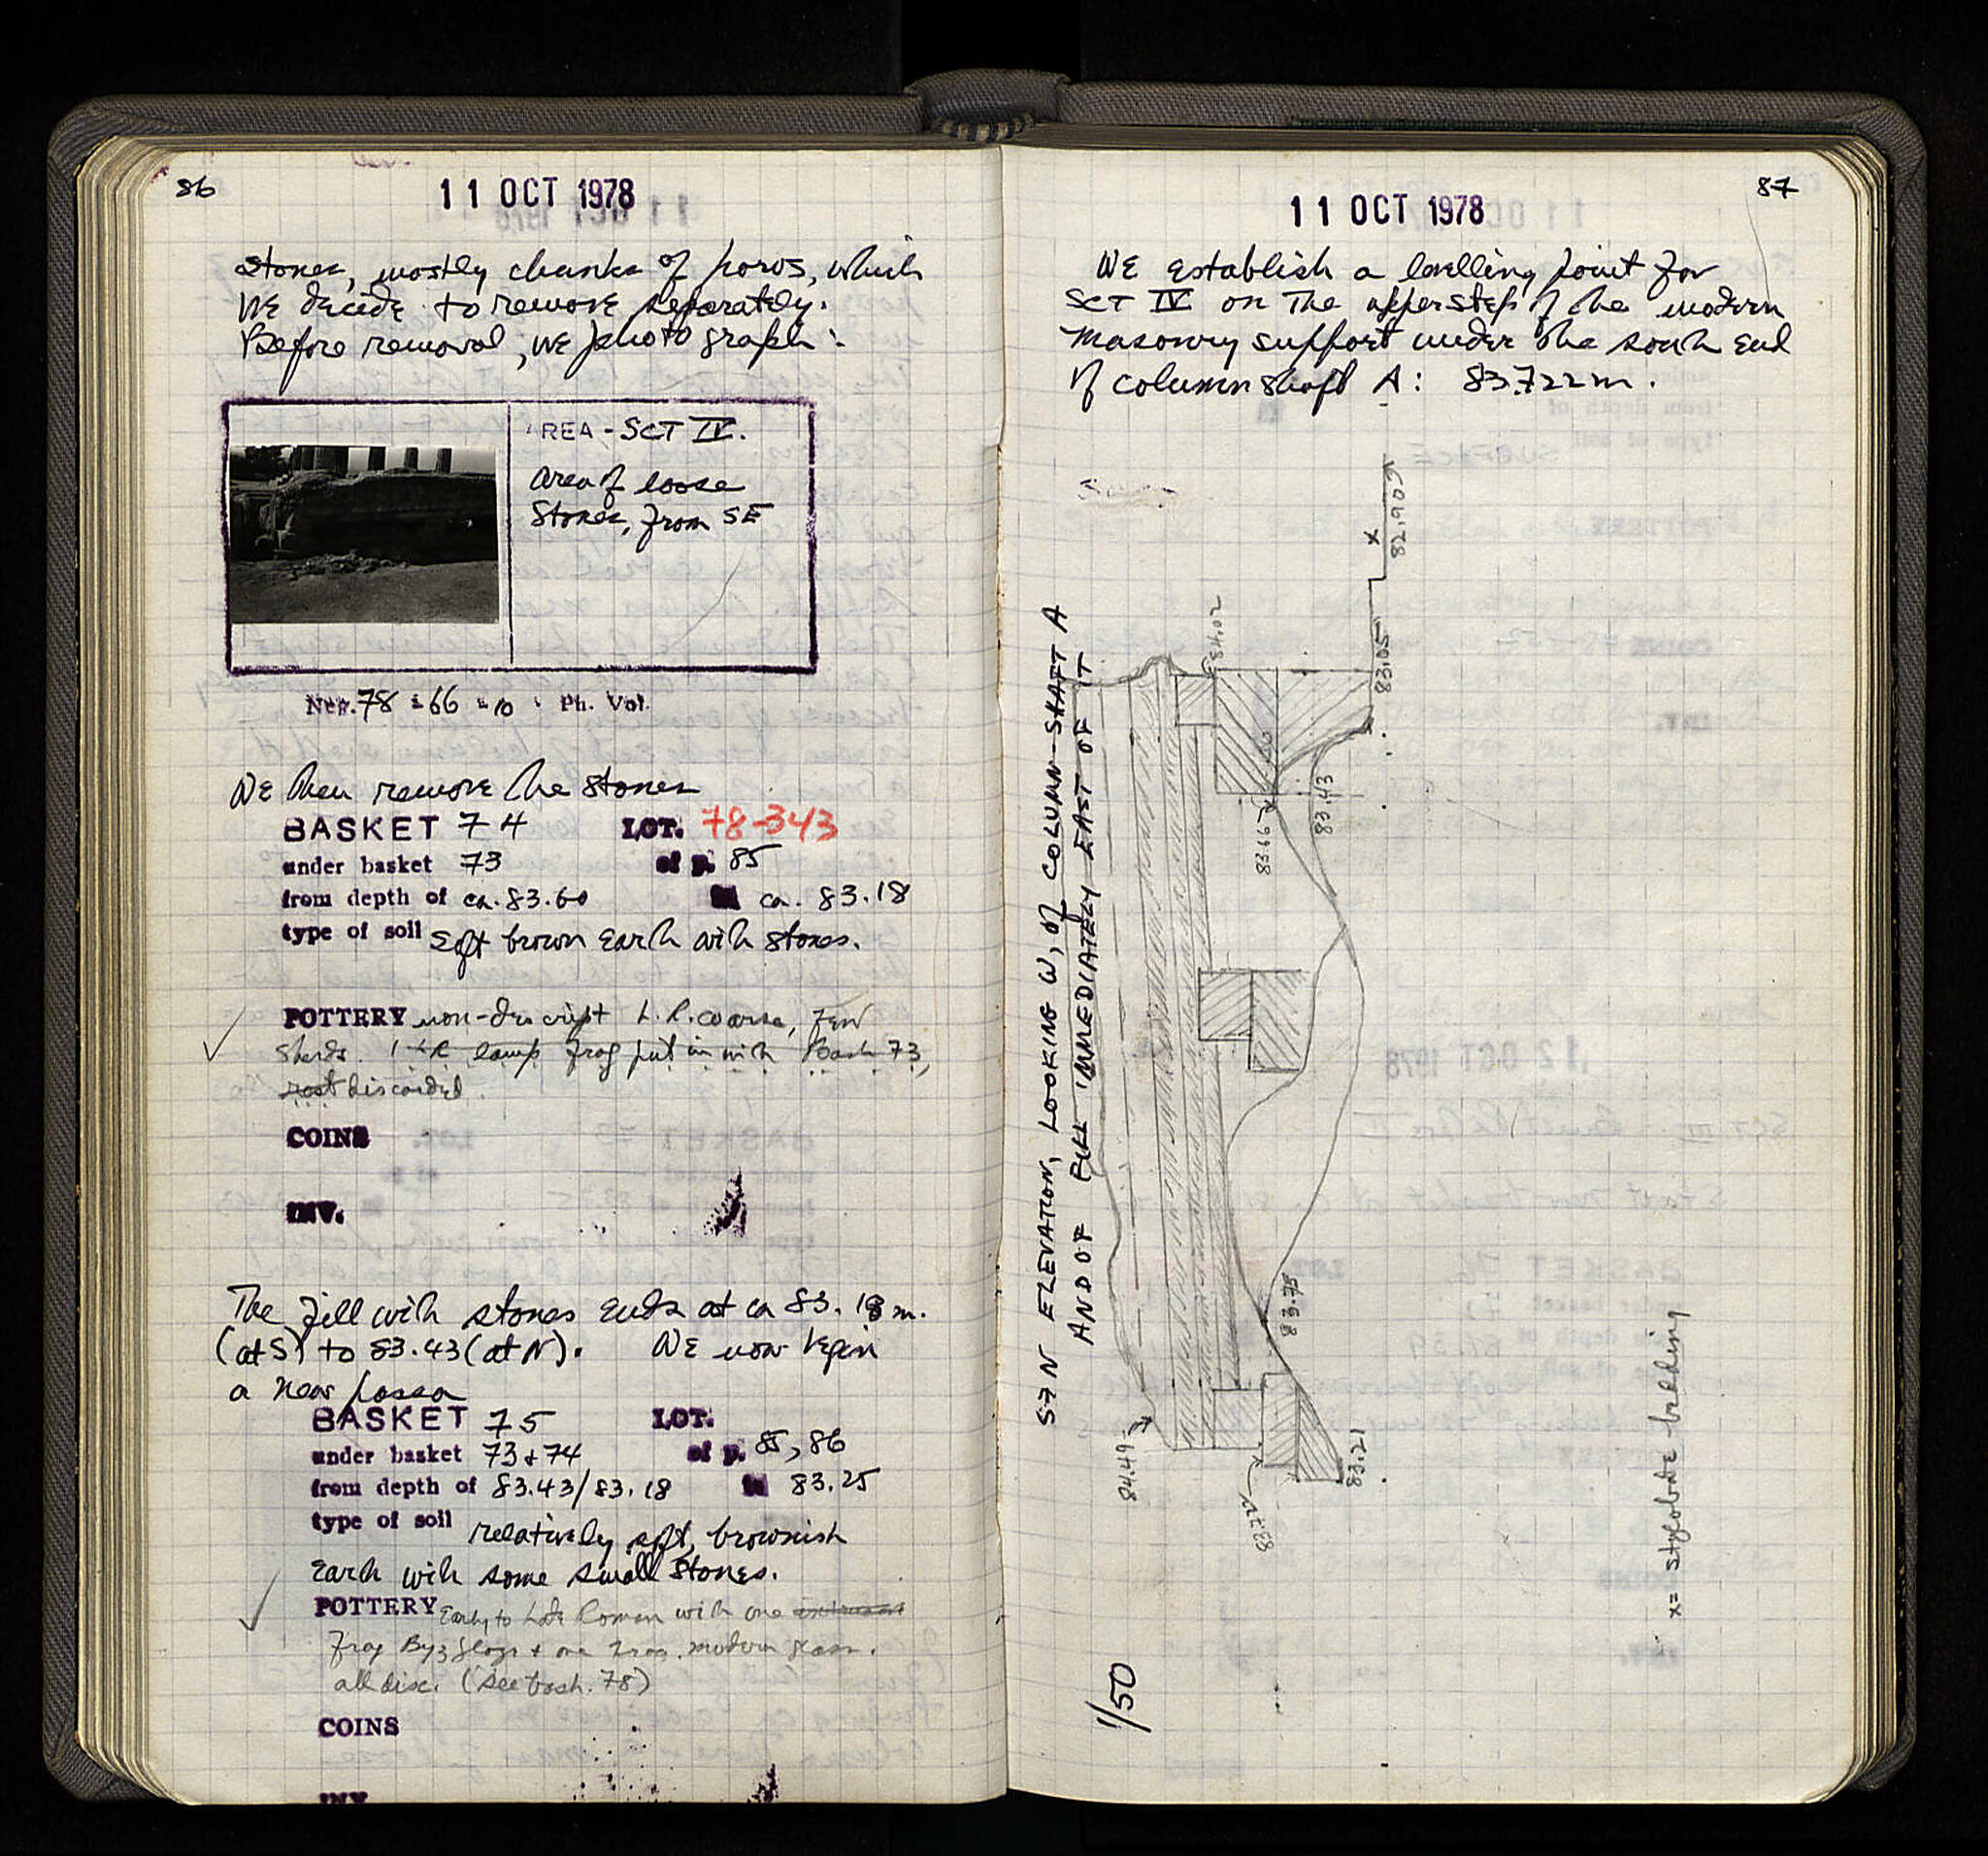 86
11 OCT 1978
stones, mostly chunks of poros, which
we decide to remove separately.
Before removal, we photograph:
AREA - SCT IV.
Area of loose
stones, from SE
Neg. 78 - 66 - 10 Ph. Vol.
We then remove the stones
BASKET 74 LOT. 78-343
under basket 73 of p. 85
from depth of ca. 83.60 to ca. 83.18
type of soil soft brown earth with stones.
POTTERY non-descript L.R. coarse, few
sherds. 1 LR lamp frag put in with Bask 73,
rest discarded
COINS
INV.
The fill with stones ends at ca 83.18 m.
(at S) to 83.43 (at N). We now begin
a new passa
BASKET 75 LOT.
under basket 73 + 74 of p. 85, 86
from depth of 83.43/83.18 to 83.25
type of soil relatively soft, brownish
earth with some small stones.
POTTERY Early to Late Roman with one
frag Byz glaze + one frag. modern glass.
all disc. (see bask. 78)
COINS
INV
87
11 OCT 1978
We establish a levelling point for
SCT IV on the upper step of the modern
masonry support under the south end
of column shaft A: 83.722 m.
S-N ELEVATION, LOOKING W, OF COLUMN-SHAFT A
AND OF FILL IMMEDIATELY EAST OF IT
x
82.90
84.02
83.05
83.66
83.43
83.75
84.49
83.72
83.21
x = stylobate bedding
1/50